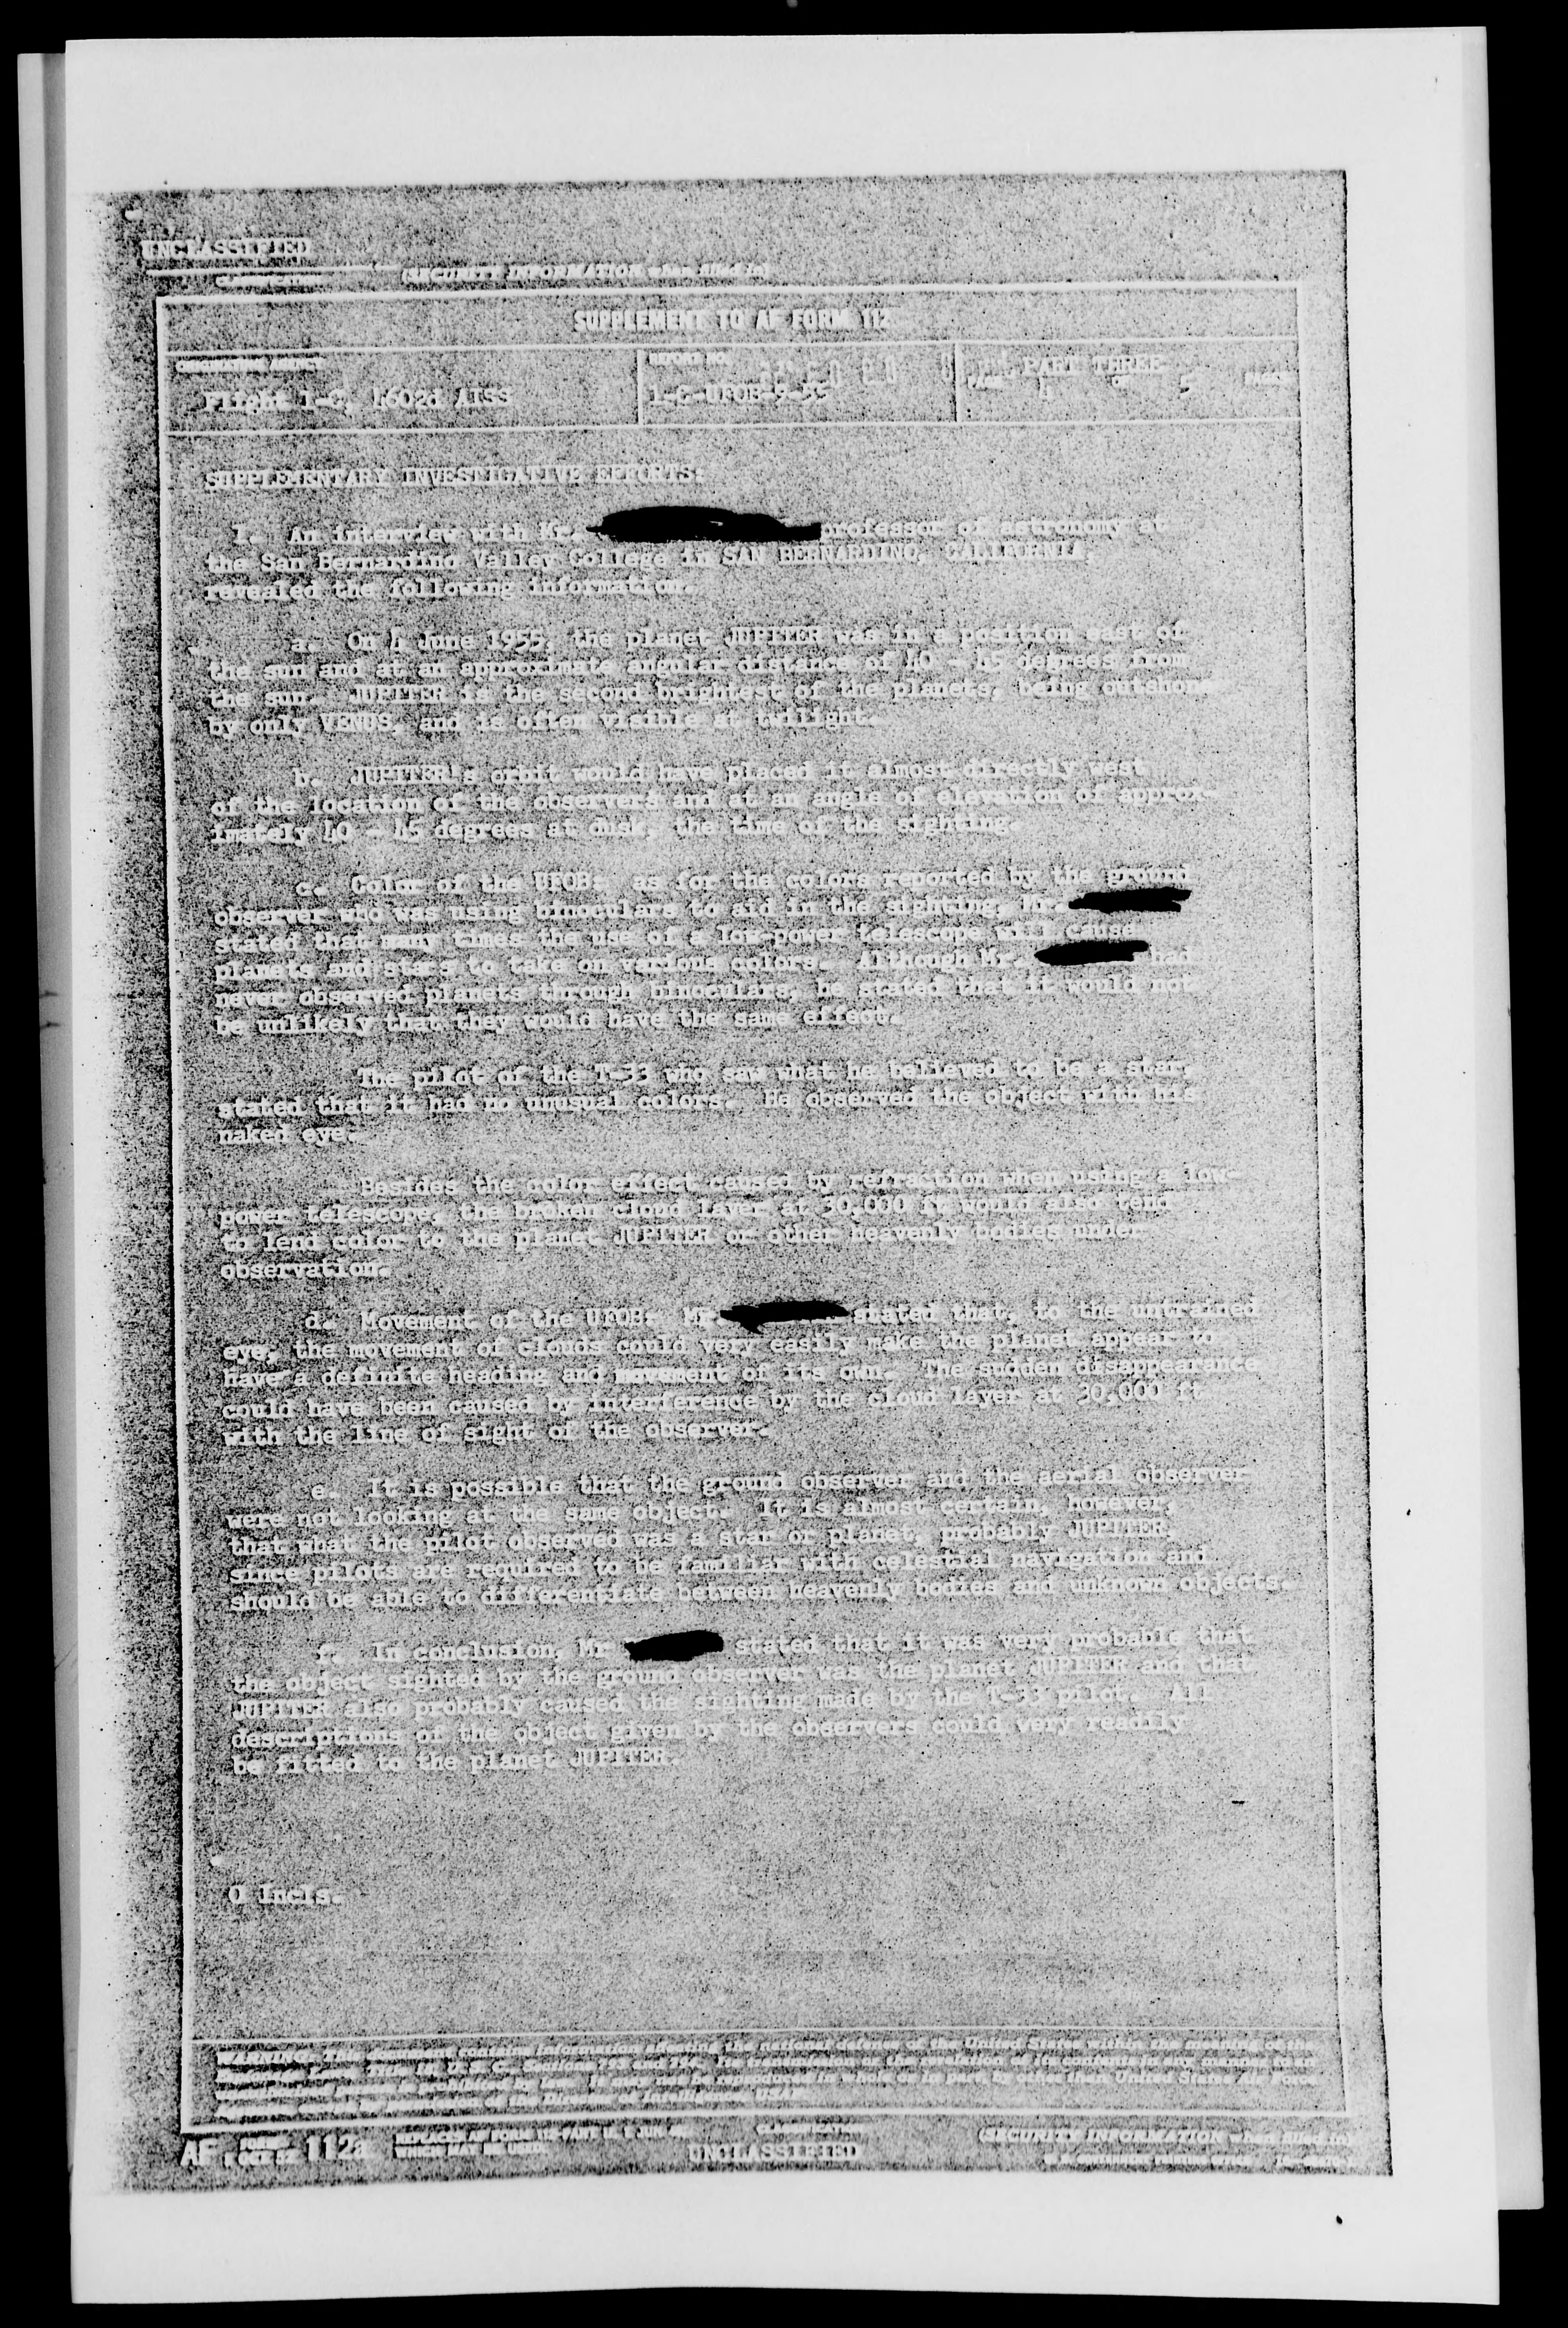 UNCLASSIFIED
(SECURITY INFORMATION when filled in)
SUPPLEMENT TO AF FORM 112
ORIGINATING AGENCY
REPORT NO.
PART THREE
Flight 1-C, 4602d AISS
1-C-UFOB-9-55
PAGE 4 OF 5 PAGES
SUPPLEMENTARY INVESTIGATIVE EFFORTS:
1. An interview with Mr. professor of astronomy at
the San Bernardino Valley College in SAN BERNARDINO, CALIFORNIA,
revealed the following information.
a. On 4 June 1955, the planet JUPITER was in a position east of
the sun and at an approximate angular distance of 40 - 45 degrees from
the sun. JUPITER is the second brightest of the planets, being outshone
by only VENUS, and is often visible at twilight.
b. JUPITER's orbit would have placed it almost directly west
of the location of the observers and at an angle of elevation of approx-
imately 40 - 45 degrees at dusk, the time of the sighting.
c. Color of the UFOB: as for the colors reported by the ground
observer who was using binoculars to aid in the sighting, Mr.
stated that many times the use of a low-power telescope will cause
planets and stars to take on various colors. Although Mr. had
never observed planets through binoculars, he stated that it would not
be unlikely that they would have the same effect.
The pilot of the T-33 who saw what he believed to be a star,
stated that it had no unusual colors. He observed the object with his
naked eye.
Besides the color effect caused by refraction when using a low-
power telescope, the broken cloud layer at 30,000 ft would also tend
to lend color to the planet JUPITER or other heavenly bodies under
observation.
d. Movement of the UFOB: Mr. stated that, to the untrained
eye, the movement of clouds could very easily make the planet appear to
have a definite heading and movement of its own. The sudden disappearance
could have been caused by interference by the cloud layer at 30,000 ft
with the line of sight of the observer.
e. It is possible that the ground observer and the aerial observer
were not looking at the same object. It is almost certain, however,
that what the pilot observed was a star or planet, probably JUPITER,
since pilots are required to be familiar with celestial navigation and
should be able to differentiate between heavenly bodies and unknown objects.
f. In conclusion, Mr stated that it was very probable that
the object sighted by the ground observer was the planet JUPITER and that
JUPITER also probably caused the sighting made by the T-33 pilot. All
descriptions of the object given by the observers could very readily
be fitted to the planet JUPITER.
0 Incls.
AF FORM 112a
UNCLASSIFIED
(SECURITY INFORMATION when filled in)